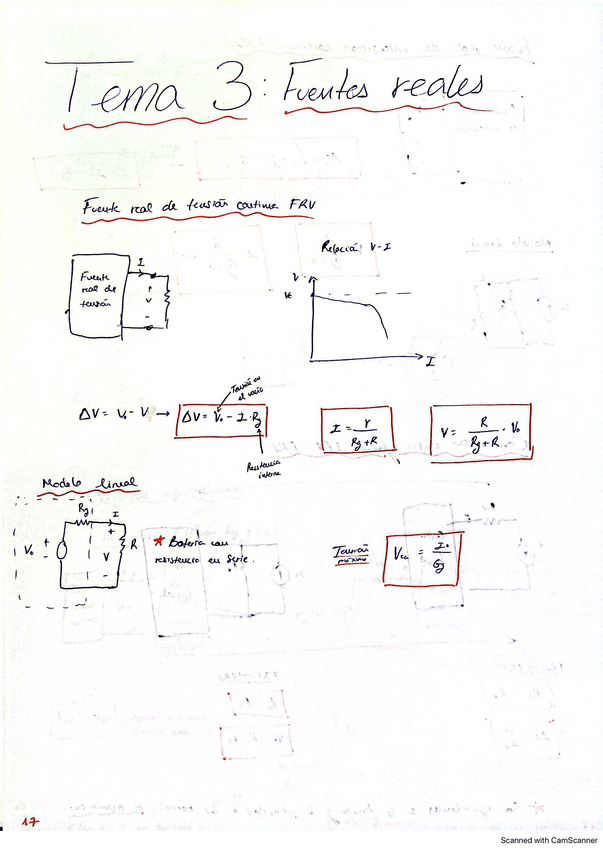 Tema 3: Fuentes reales
Fuente real de tensión continua FRV
Relación V-I
Fuente
real de
tensión
I
+
V
-
V
V₀
I
Tensión en
el vacío
ΔV = V₀ - V → ΔV = V₀ - I·Rg
Resistencia
interna
I = V / Rg+R
V = R / Rg+R · V₀
Modelo lineal
Rg I
V₀ + - + V - R
* Batería con
resistencia en serie.
Tensión
máxima
Vca = I₀ / Gg
17
Scanned with CamScanner